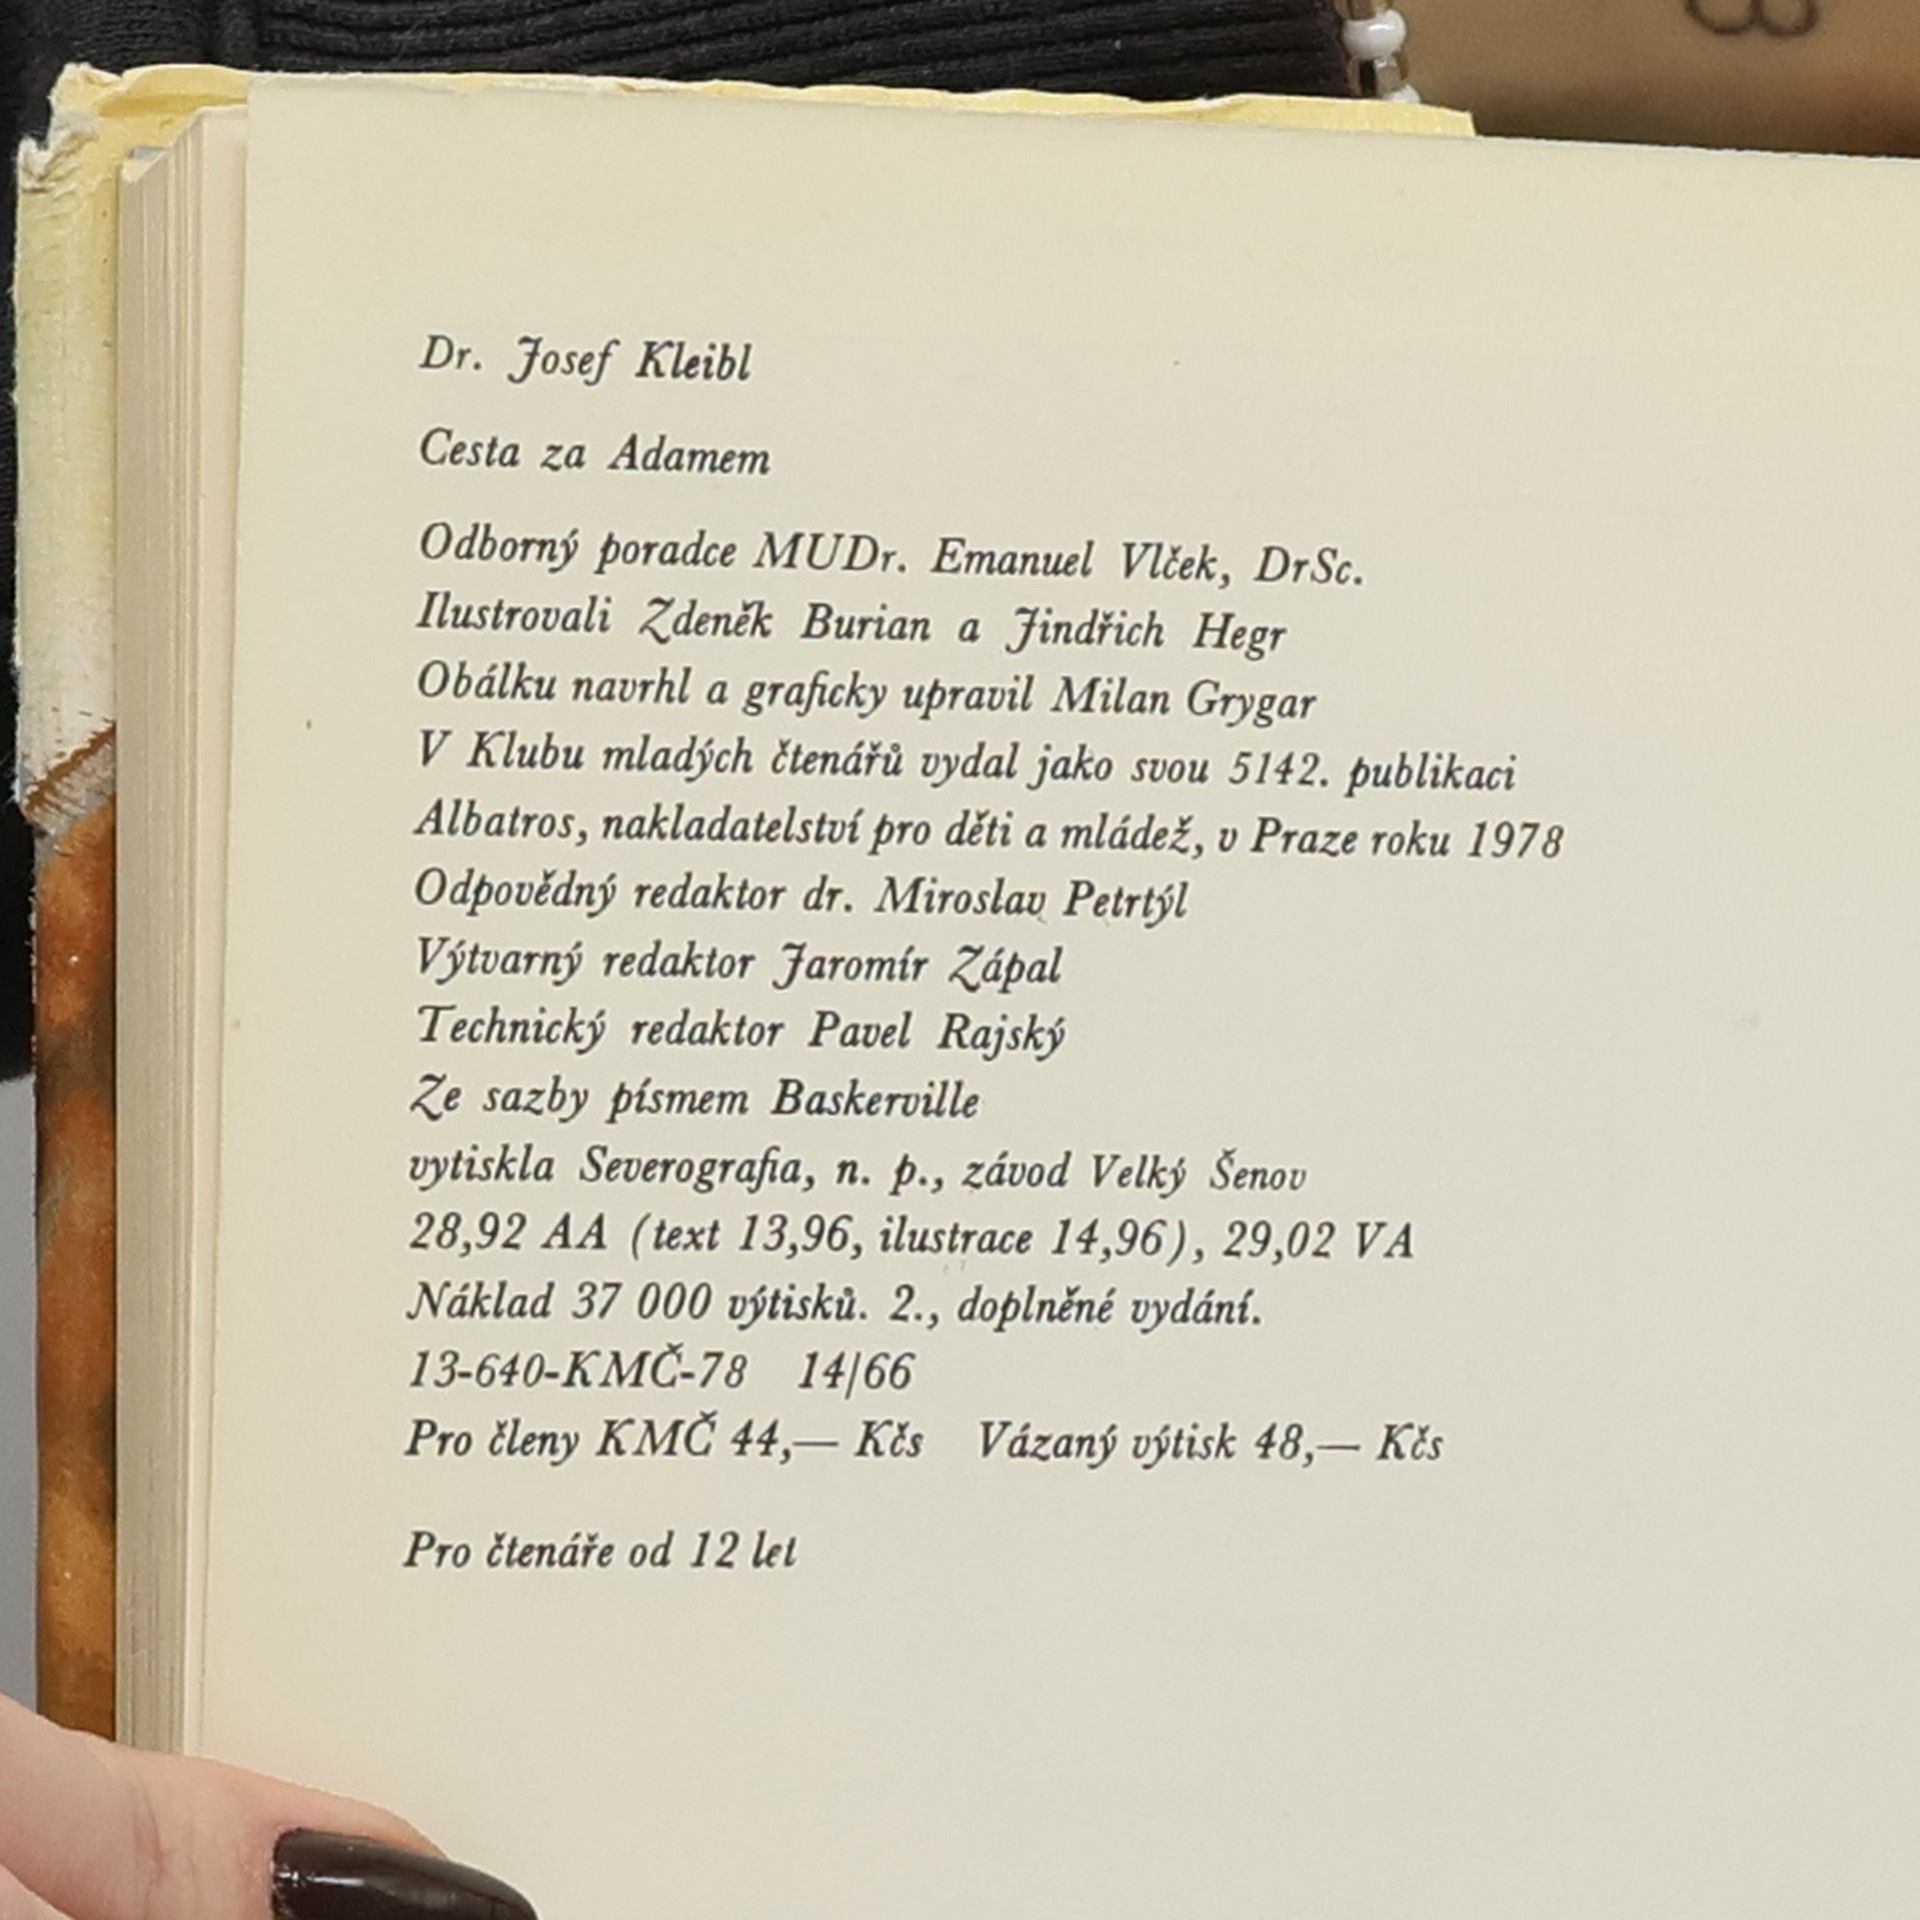 Dr. Josef Kleibl
Cesta za Adamem
Odborný poradce MUDr. Emanuel Vlček, DrSc.
Ilustrovali Zdeněk Burian a Jindřich Hegr
Obálku navrhl a graficky upravil Milan Grygar
V Klubu mladých čtenářů vydal jako svou 5142. publikaci
Albatros, nakladatelství pro děti a mládež, v Praze roku 1978
Odpovědný redaktor dr. Miroslav Petrtýl
Výtvarný redaktor Jaromír Zápal
Technický redaktor Pavel Rajský
Ze sazby písmem Baskerville
vytiskla Severografia, n. p., závod Velký Šenov
28,92 AA (text 13,96, ilustrace 14,96), 29,02 VA
Náklad 37 000 výtisků. 2., doplněné vydání.
13-640-KMČ-78 14/66
Pro členy KMČ 44,— Kčs Vázaný výtisk 48,— Kčs
Pro čtenáře od 12 let